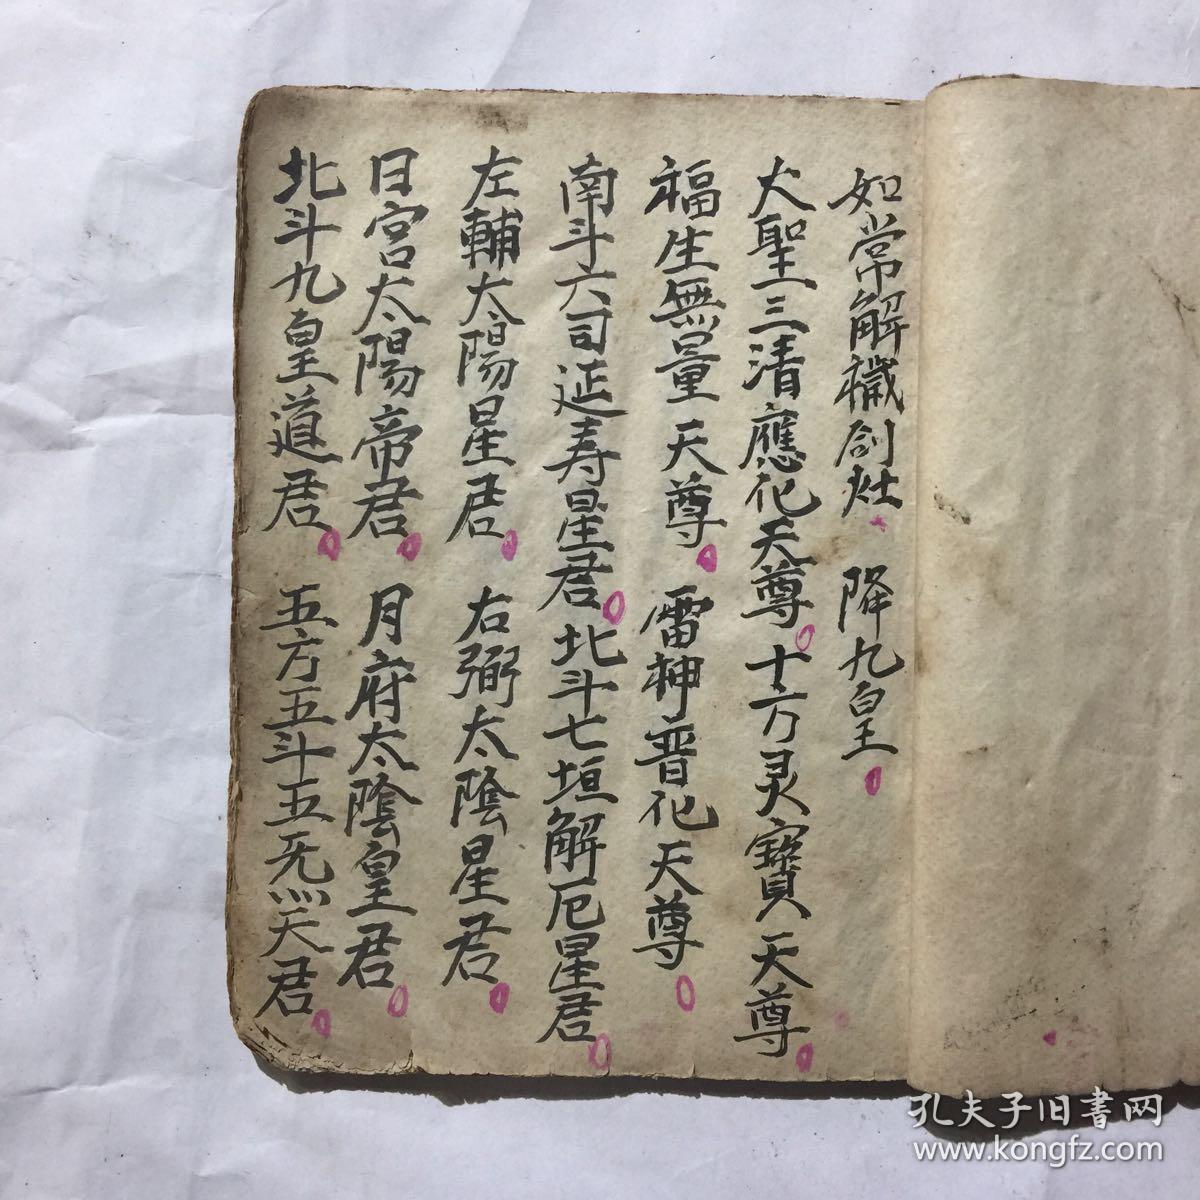 如常解穢创灶 降九皇
大聖三清應化天尊 十方灵寶天尊
福生無量天尊 雷神普化天尊
南斗六司延寿星君 北斗七垣解厄星君
左輔太陽星君 右弼太陰星君
日宮太陽帝君 月府太陰皇君
北斗九皇道君 五方五斗五炁天君
孔夫子旧書网
www.kongfz.com